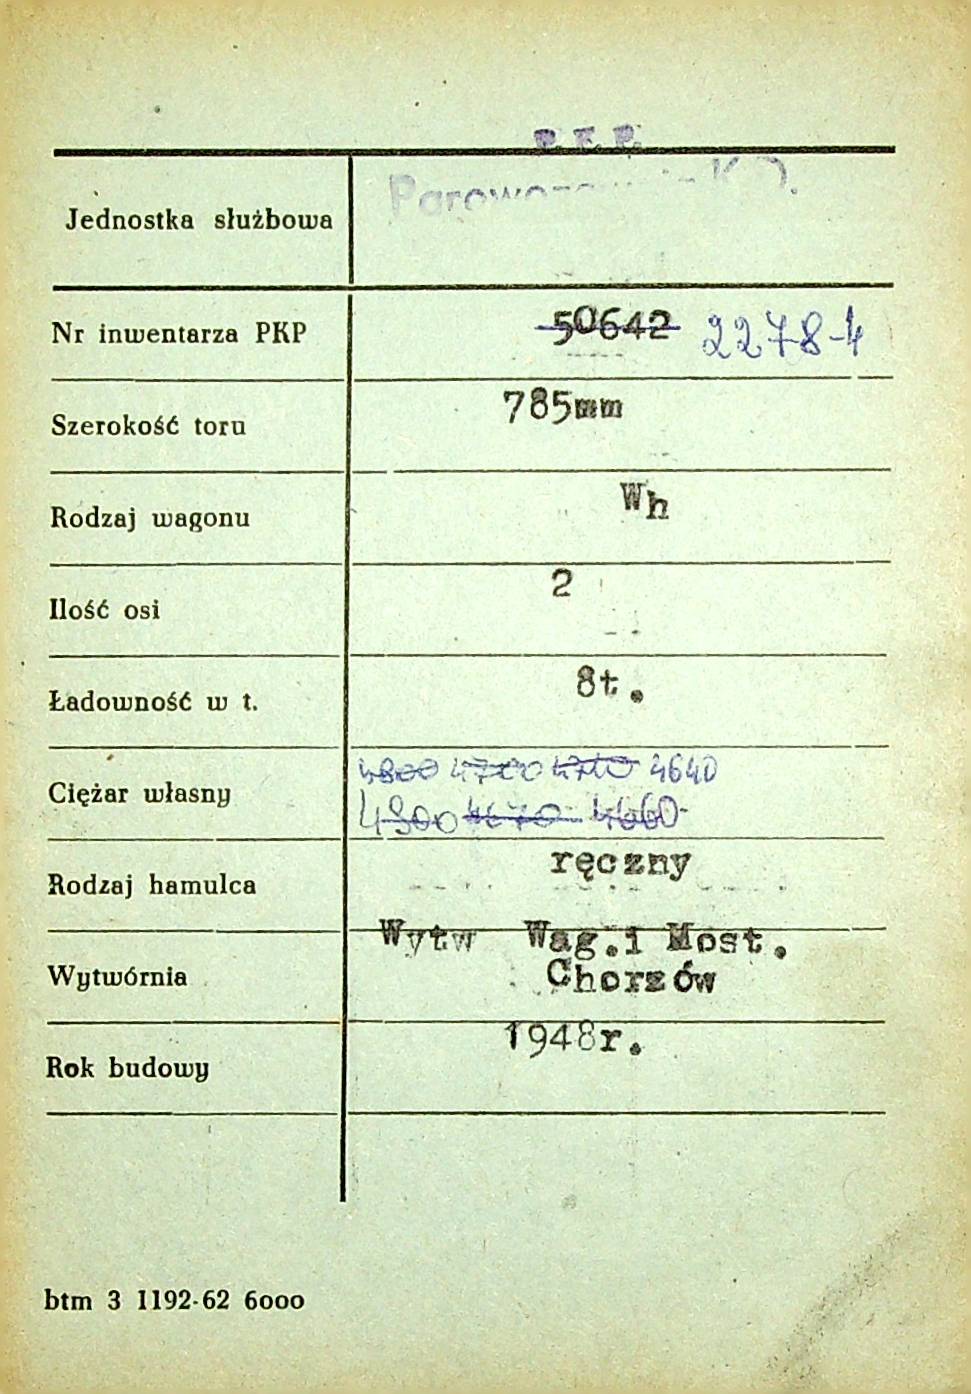 P.K.P.
Jednostka służbowa
Nr inwentarza PKP 50642 2278-4
Szerokość toru 785mm
Rodzaj wagonu Wh
Ilość osi 2
Ładowność w t. 8t.
4800 4700 4710 4640
Ciężar własny
4800 4670 4660
Rodzaj hamulca ręczny
Wytw Wag.i Most.
Wytwórnia Chorzów
Rok budowy 1948r.
btm 3 1192-62 6000